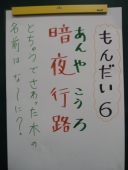 もんだい6
あんや こうろ
暗夜行路
とちゅうでさわった木の
名前はなーに？